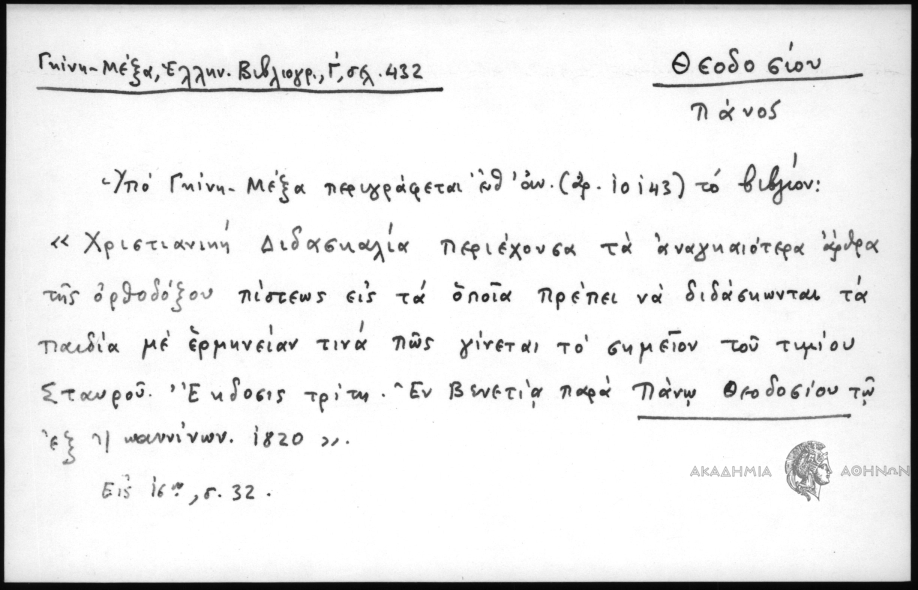 Γκίνη-Μέξα, Ἑλλην. Βιβλιογρ., Γ', σελ. 432
Θεοδοσίου
Πάνος
Ὑπό Γκίνη-Μέξα περιγράφεται ἐνθ' ἀν. (ἀρ. 10143) τό βιβλίον:
« Χριστιανική Διδασκαλία περιέχουσα τὰ ἀναγκαιότερα ἄρθρα
τῆς ὀρθοδόξου πίστεως εἰς τά ὁποῖα πρέπει νὰ διδάσκωνται τά
παιδία μέ ἑρμηνείαν τινά πῶς γίνεται τό σημεῖον τοῦ τιμίου
Σταυροῦ. Ἔκδοσις τρίτη. Ἐν Βενετίᾳ παρά Πάνῳ Θεοδοσίου τῷ
ἐξ Ἰωαννίνων. 1820 ».
Εἰς 16ον, σ. 32.
ΑΚΑΔΗΜΙΑ ΑΘΗΝΩΝ